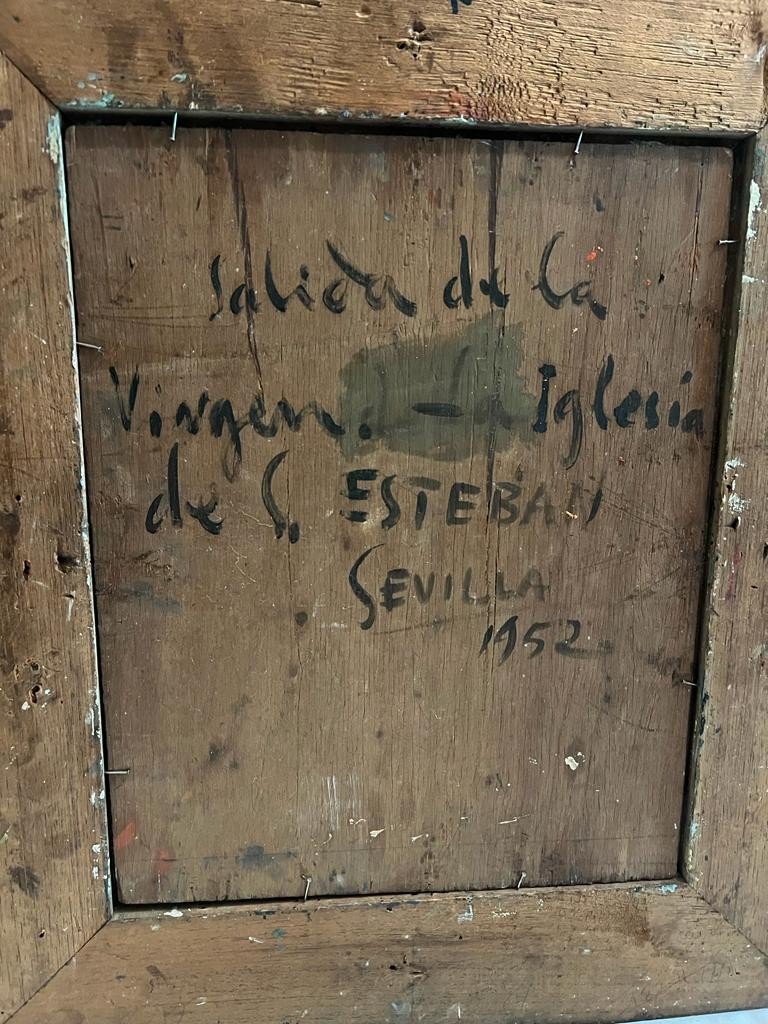 Salida de la
Virgen. – La Iglesia
de S. ESTEBAN
SEVILLA
1952